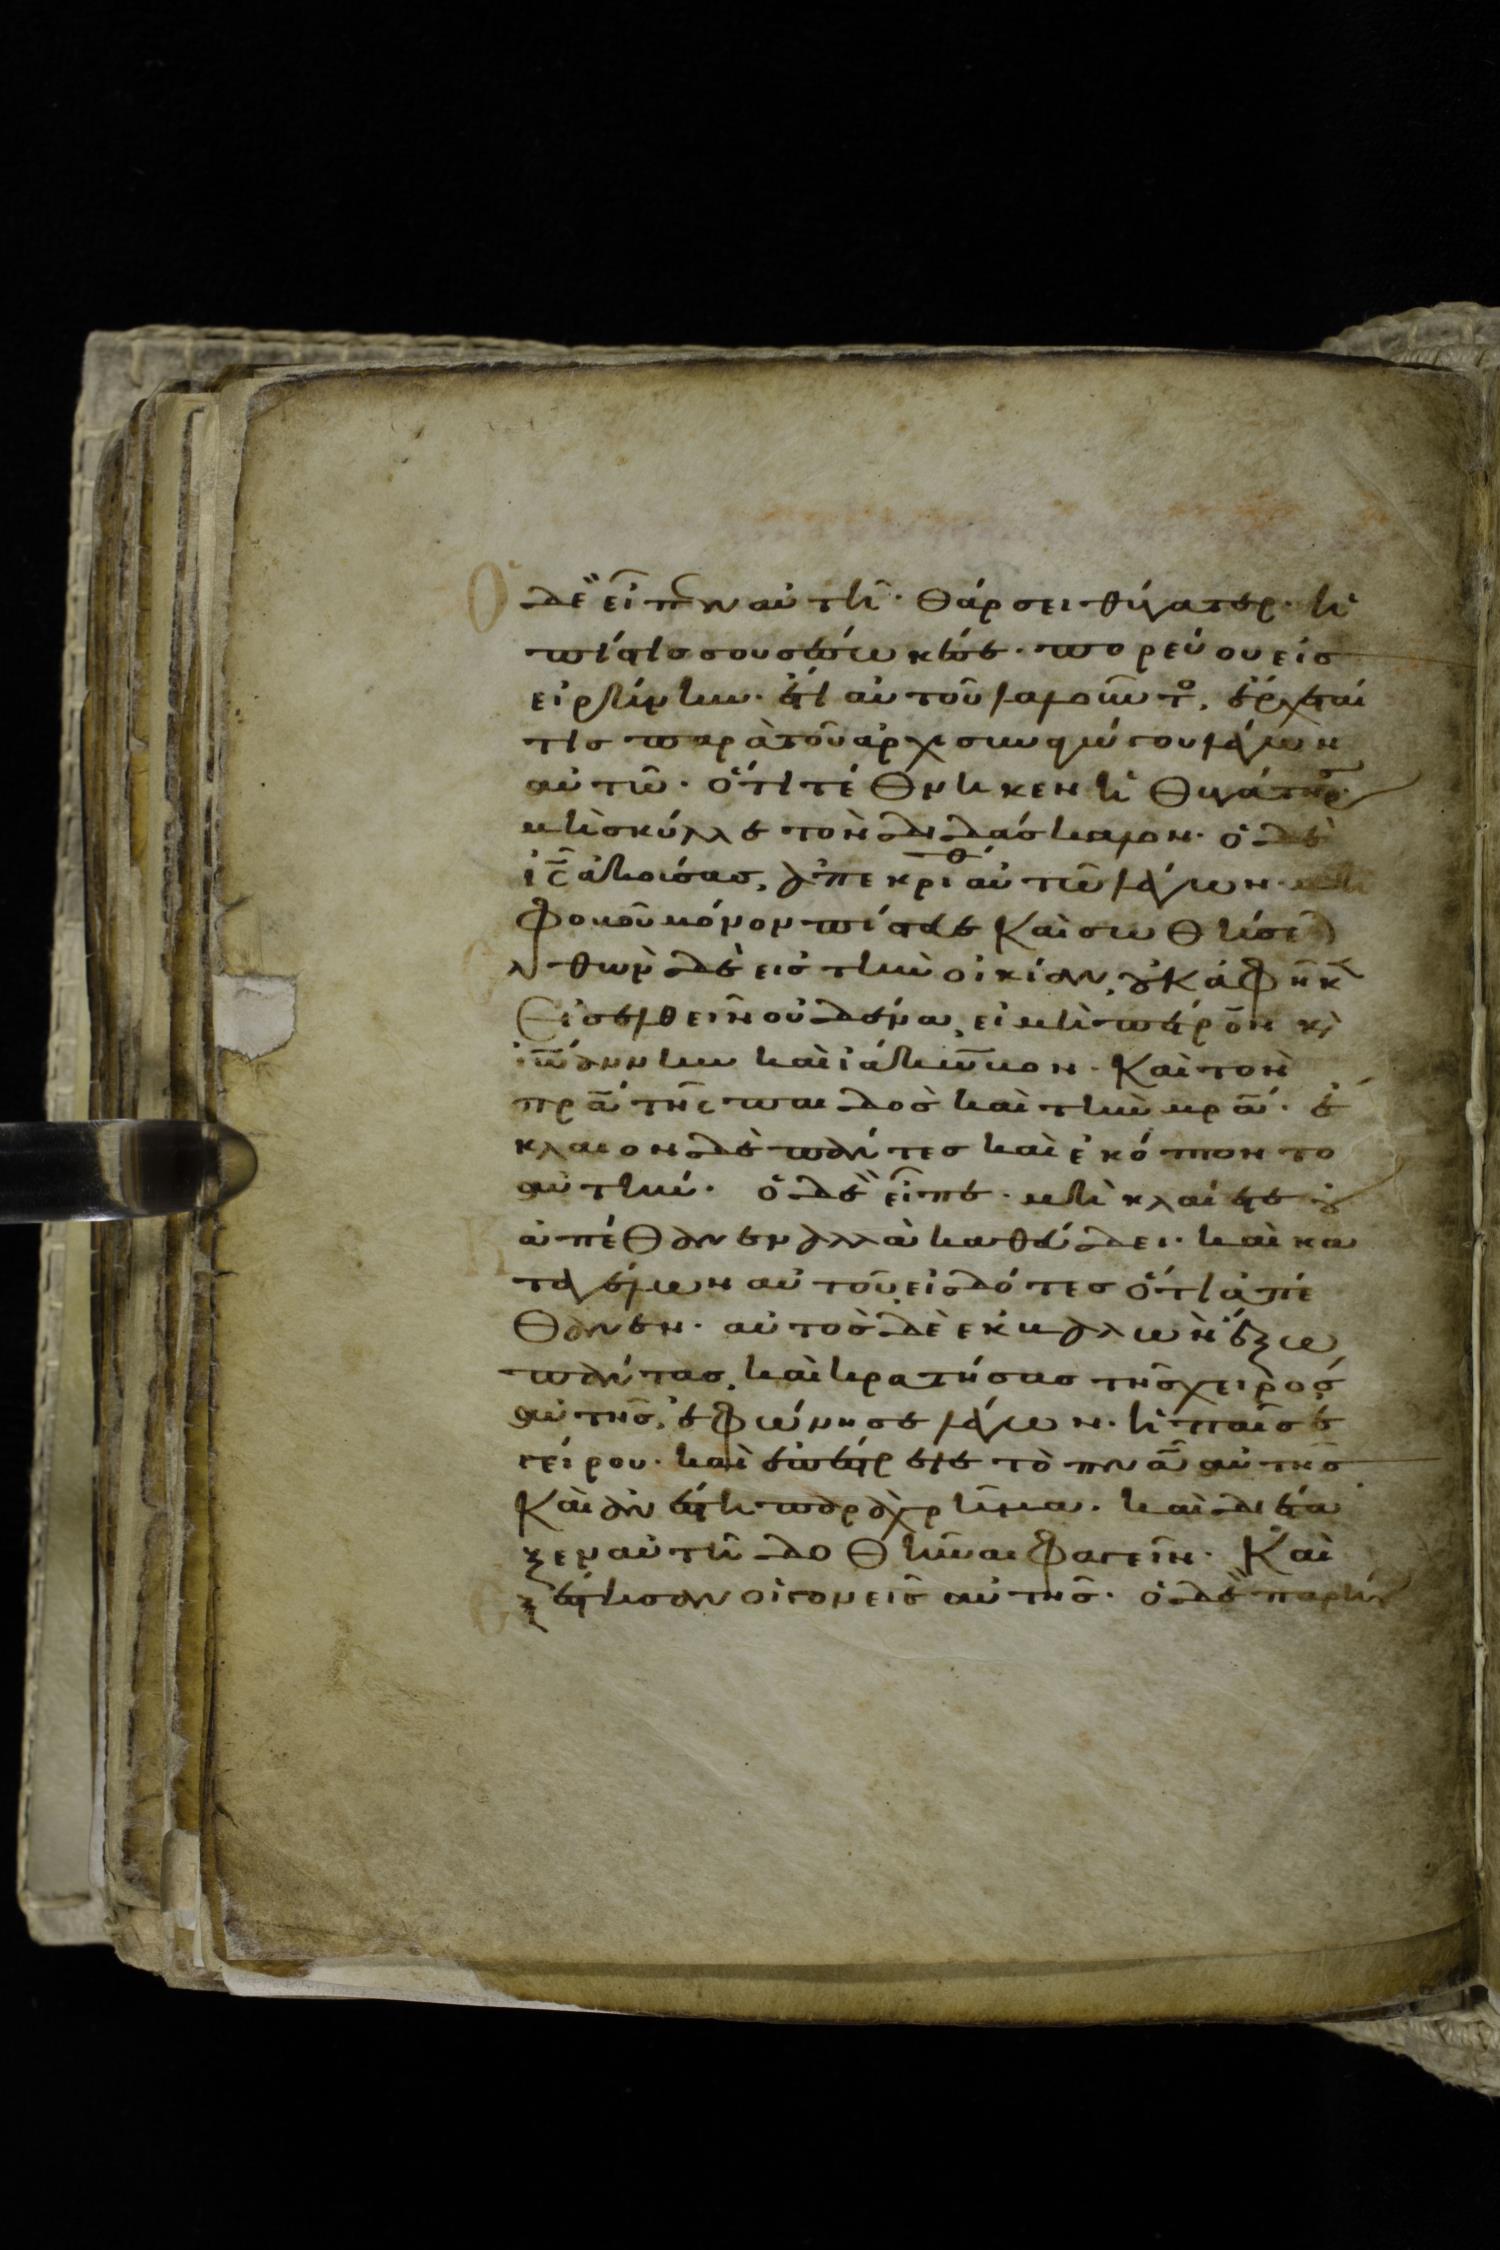 Ὁ δὲ εἶπεν αὐτῆ· θάρσει θύγατερ· ἡ
πίστις σου σέσωκέ σε· πορεύου εἰς
εἰρήνην· ἔτι αὐτοῦ λαλοῦντο, ἔρχεταί
τις παρὰ τοῦ ἀρχισυναγώγου λέγων
αὐτῶ· ὅτι τέθνηκεν ἡ θυγάτηρ
μὴ σκύλλε τὸν διδάσκαλον· ὁ δὲ
ἰς ἀκούσας, ἀπεκρίθ αὐτῶ λέγων· μὴ
φοβοῦ μόνον πίστευε καὶ σωθήσε
Ἐλθὼν δὲ εἰς τὴν οἰκίαν, οὐκ ἀφῆκ
εἰσελθεῖν οὐδένα, εἰ μὴ πέτρον κ
ἰωάννην καὶ ἰάκωβον· Καὶ τὸν
πρα τῆς παιδὸς καὶ τὴν μρα· ἔ
κλαιον δὲ πάντες καὶ ἐκόπτοντο
αὐτήν· ὁ δὲ εἶπε· μὴ κλαίετε οὐ
ἀπέθανεν ἀλλὰ καθεύδει· καὶ κα
τεγέλων αὐτοῦ εἰδότες ὅτι ἀπέ
θανεν· αὐτὸς δὲ ἐκβαλὼν ἔξω
πάντας, καὶ κρατήσας τῆς χειρὸς
αὐτῆς, ἐφώνησε λέγων· ἡ παῖς ἐ
γείρου· καὶ ἐπέστρεψε τὸ πνα αὐτῆς
Καὶ ἀνέστη παραχρῆμα· καὶ διέτα
ξεν αὐτῆ δοθῆναι φαγεῖν· Καὶ
Ἐξέστησαν οἱ γονεῖς αὐτῆς· ὁ δὲ παρήγ